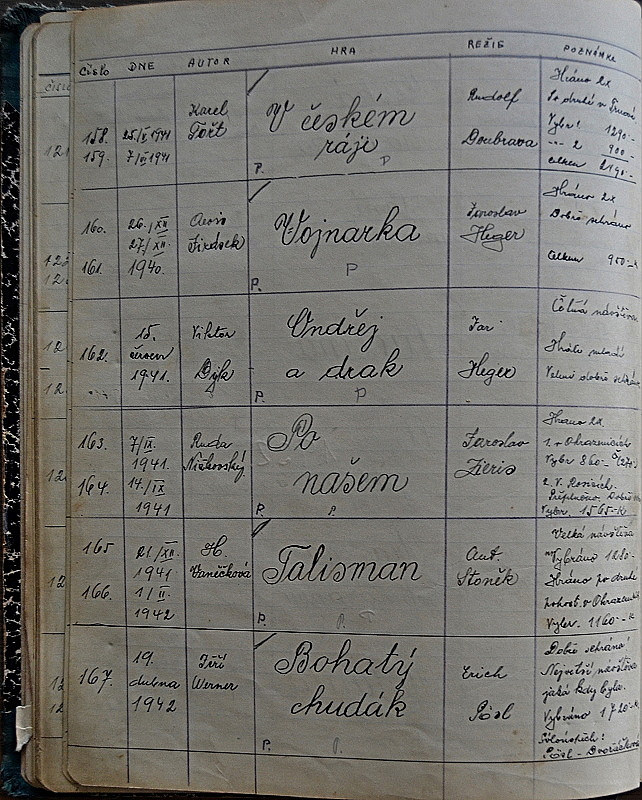 ČÍSLO DNE AUTOR HRA REŽIE POZNÁMKA
158. 25./V. 1941 Karel V českém Rudolf Hráno 2x
159. 7/VI 1941 Fořt ráji Doubrava Po druhé v
Vybr. 1290.-
" 2 900.-
Celkem 2190.-
P. P
160. 26./XII Alois Vojnarka Jaroslav Hráno 2x
27./XII. Jirásek Heger Dobře sehráno
161. 1940. P Celkem 950.-K
P.
162. 15. Viktor Ondřej Jar Četná návštěva
červen Dyk a drak Heger Hráli mladí
1941. P. P Velmi dobře
163. 7/IX. Ruda Po Jaroslav Hráno 2x.
1941. našem Zieris 1. v Ohrazenicích
164. 14./IX Vybr. 860.-
1941 2. V. Rosicích.
P. P. Přeplněno. Dobře
Vybr. 1565-K
165 21./XII. H. Talisman Ant. Velká návštěva
1941 Vaněčková Stoněk Vybráno 1280.-
166. 1/II. Hráno po druhé
1942 pohost. v Ohrazenicích
P. P. Vybr. 1160.-K
167. 19. Jiří Bohatý Erich Dobře sehráno!
dubna Werner chudák Pösl Největší návštěva
1942 jaká kdy byla.
Vybráno 1720.-K
P. P. Pösl - Dvořáčková